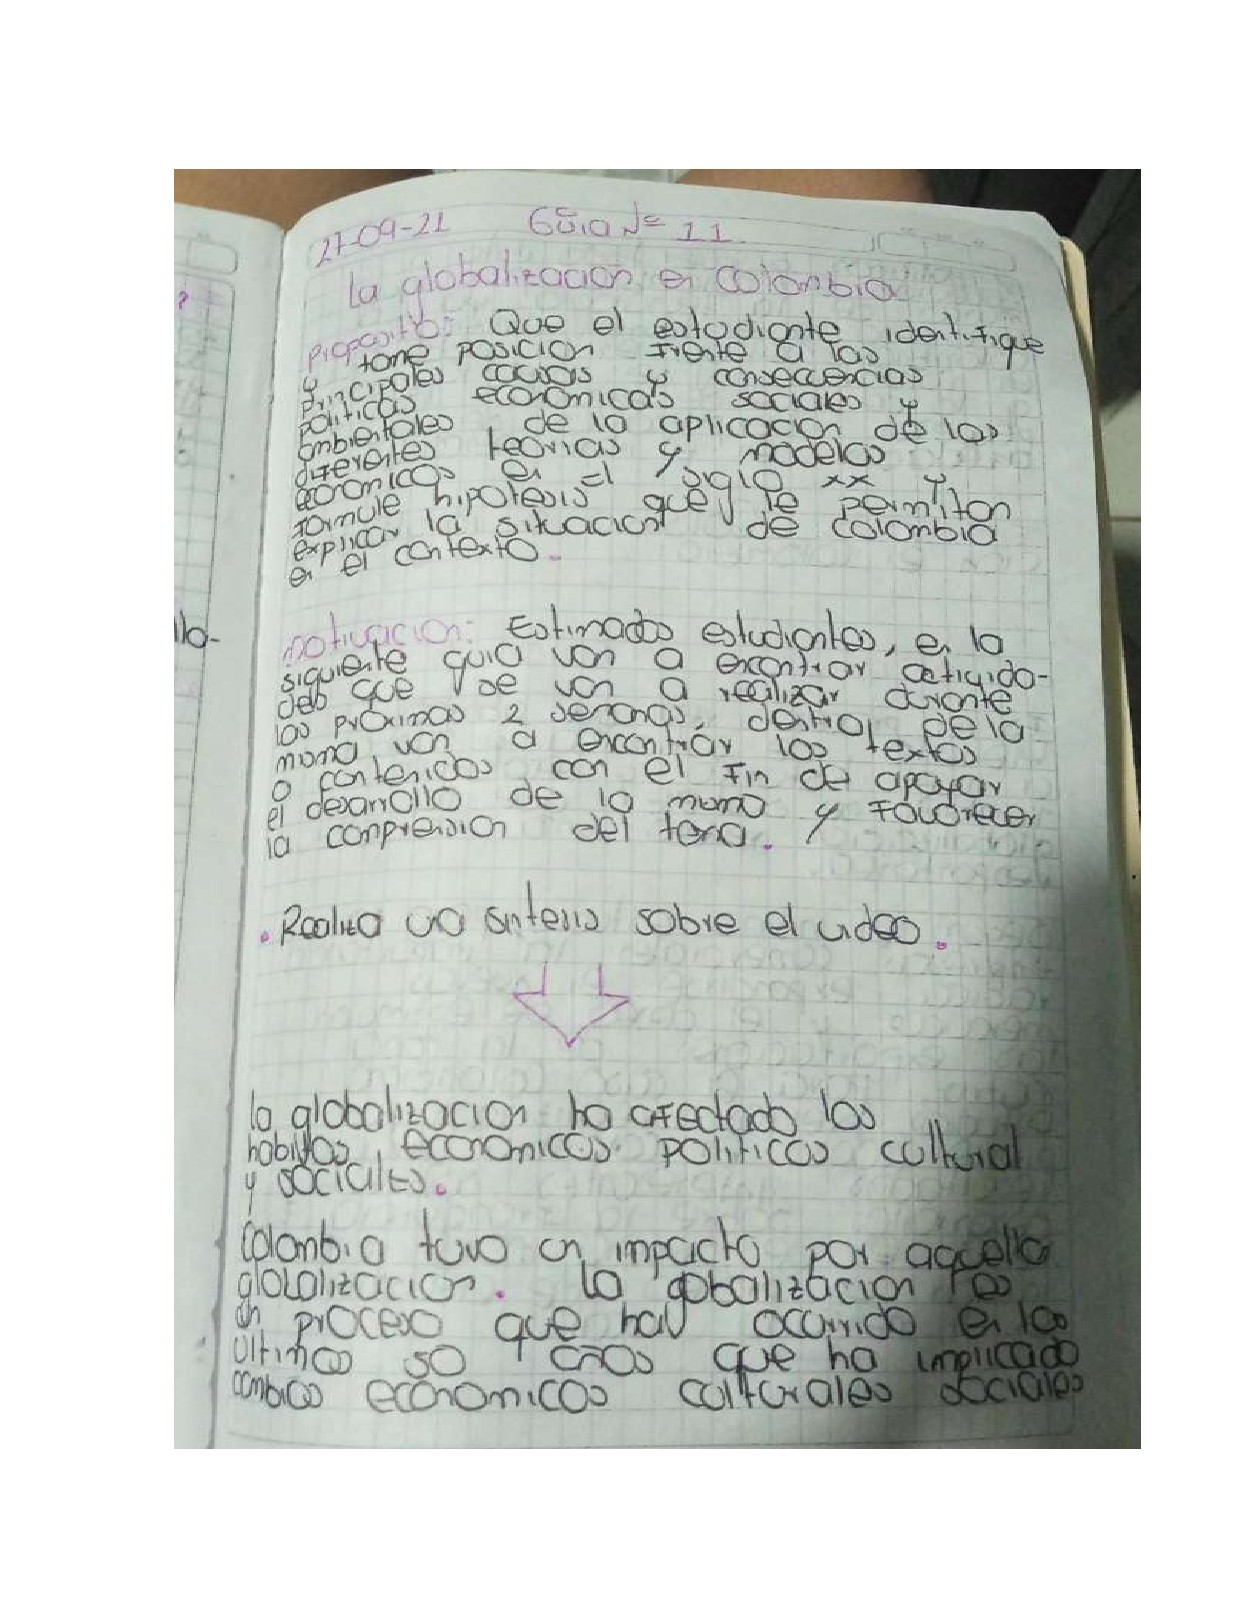 27-09-21 Guia Nº 11
La globalizacion en colombia
proposito: Que el estudiante identifique
y tome posicion frente a las
principales causas y consecuencias
politicas economicas sociales y
ambientales de la aplicacion de las
diferentes teorias y modelos
economicos en el siglo xx y
formule hipotesis que le permitan
explicar la situacion de colombia
en el contexto.
motivacion: Estimados estudiantes, en la
siguiente guia van a encontrar activida-
des que se van a realizar durante
las proximas 2 semanas, dentro de la
misma van a encontrar los textos
o contenidos con el fin de apoyar
el desarrollo de la misma y favorecer
la comprension del tema.
. Realiza una sintesis sobre el video.
la globalizacion ha afectado los
habitos economicos politicos cultural
y sociales.
Colombia tuvo un impacto por aquella
globalizacion. la gobalizacion es
un proceso que hay ocurrido en los
ultimos 50 años que ha implicado
cambios economicos culturales sociales
?
llo-